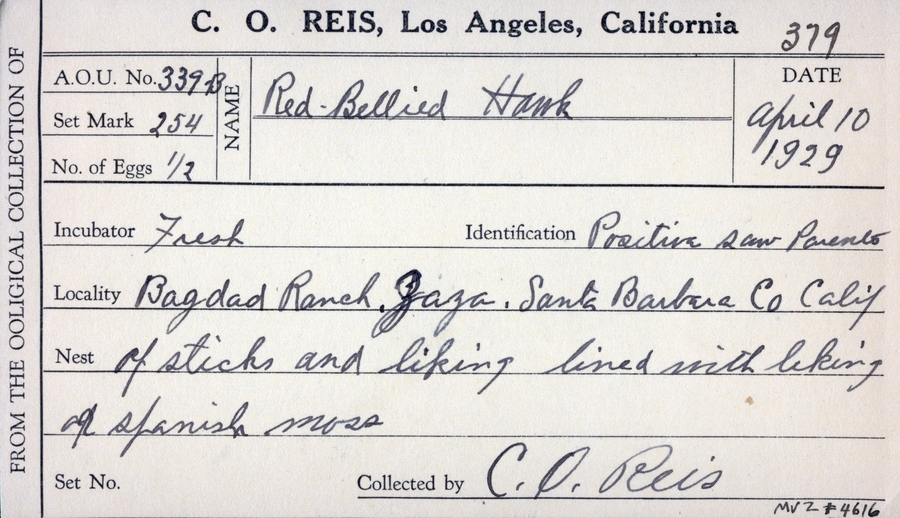 C. O. REIS, Los Angeles, California
379
FROM THE OOLIGICAL COLLECTION OF
A.O.U. No. 339B
Set Mark 254
No. of Eggs 1/2
NAME
Red-Bellied Hawk
DATE
April 10
1929
Incubator Fresh
Identification Positive saw Parents
Locality Bagdad Ranch. Zaza. Santa Barbara Co Calif
Nest of sticks and liking lined with liking
of spanish moss
Set No.
Collected by C. O. Reis
MVZ #4616